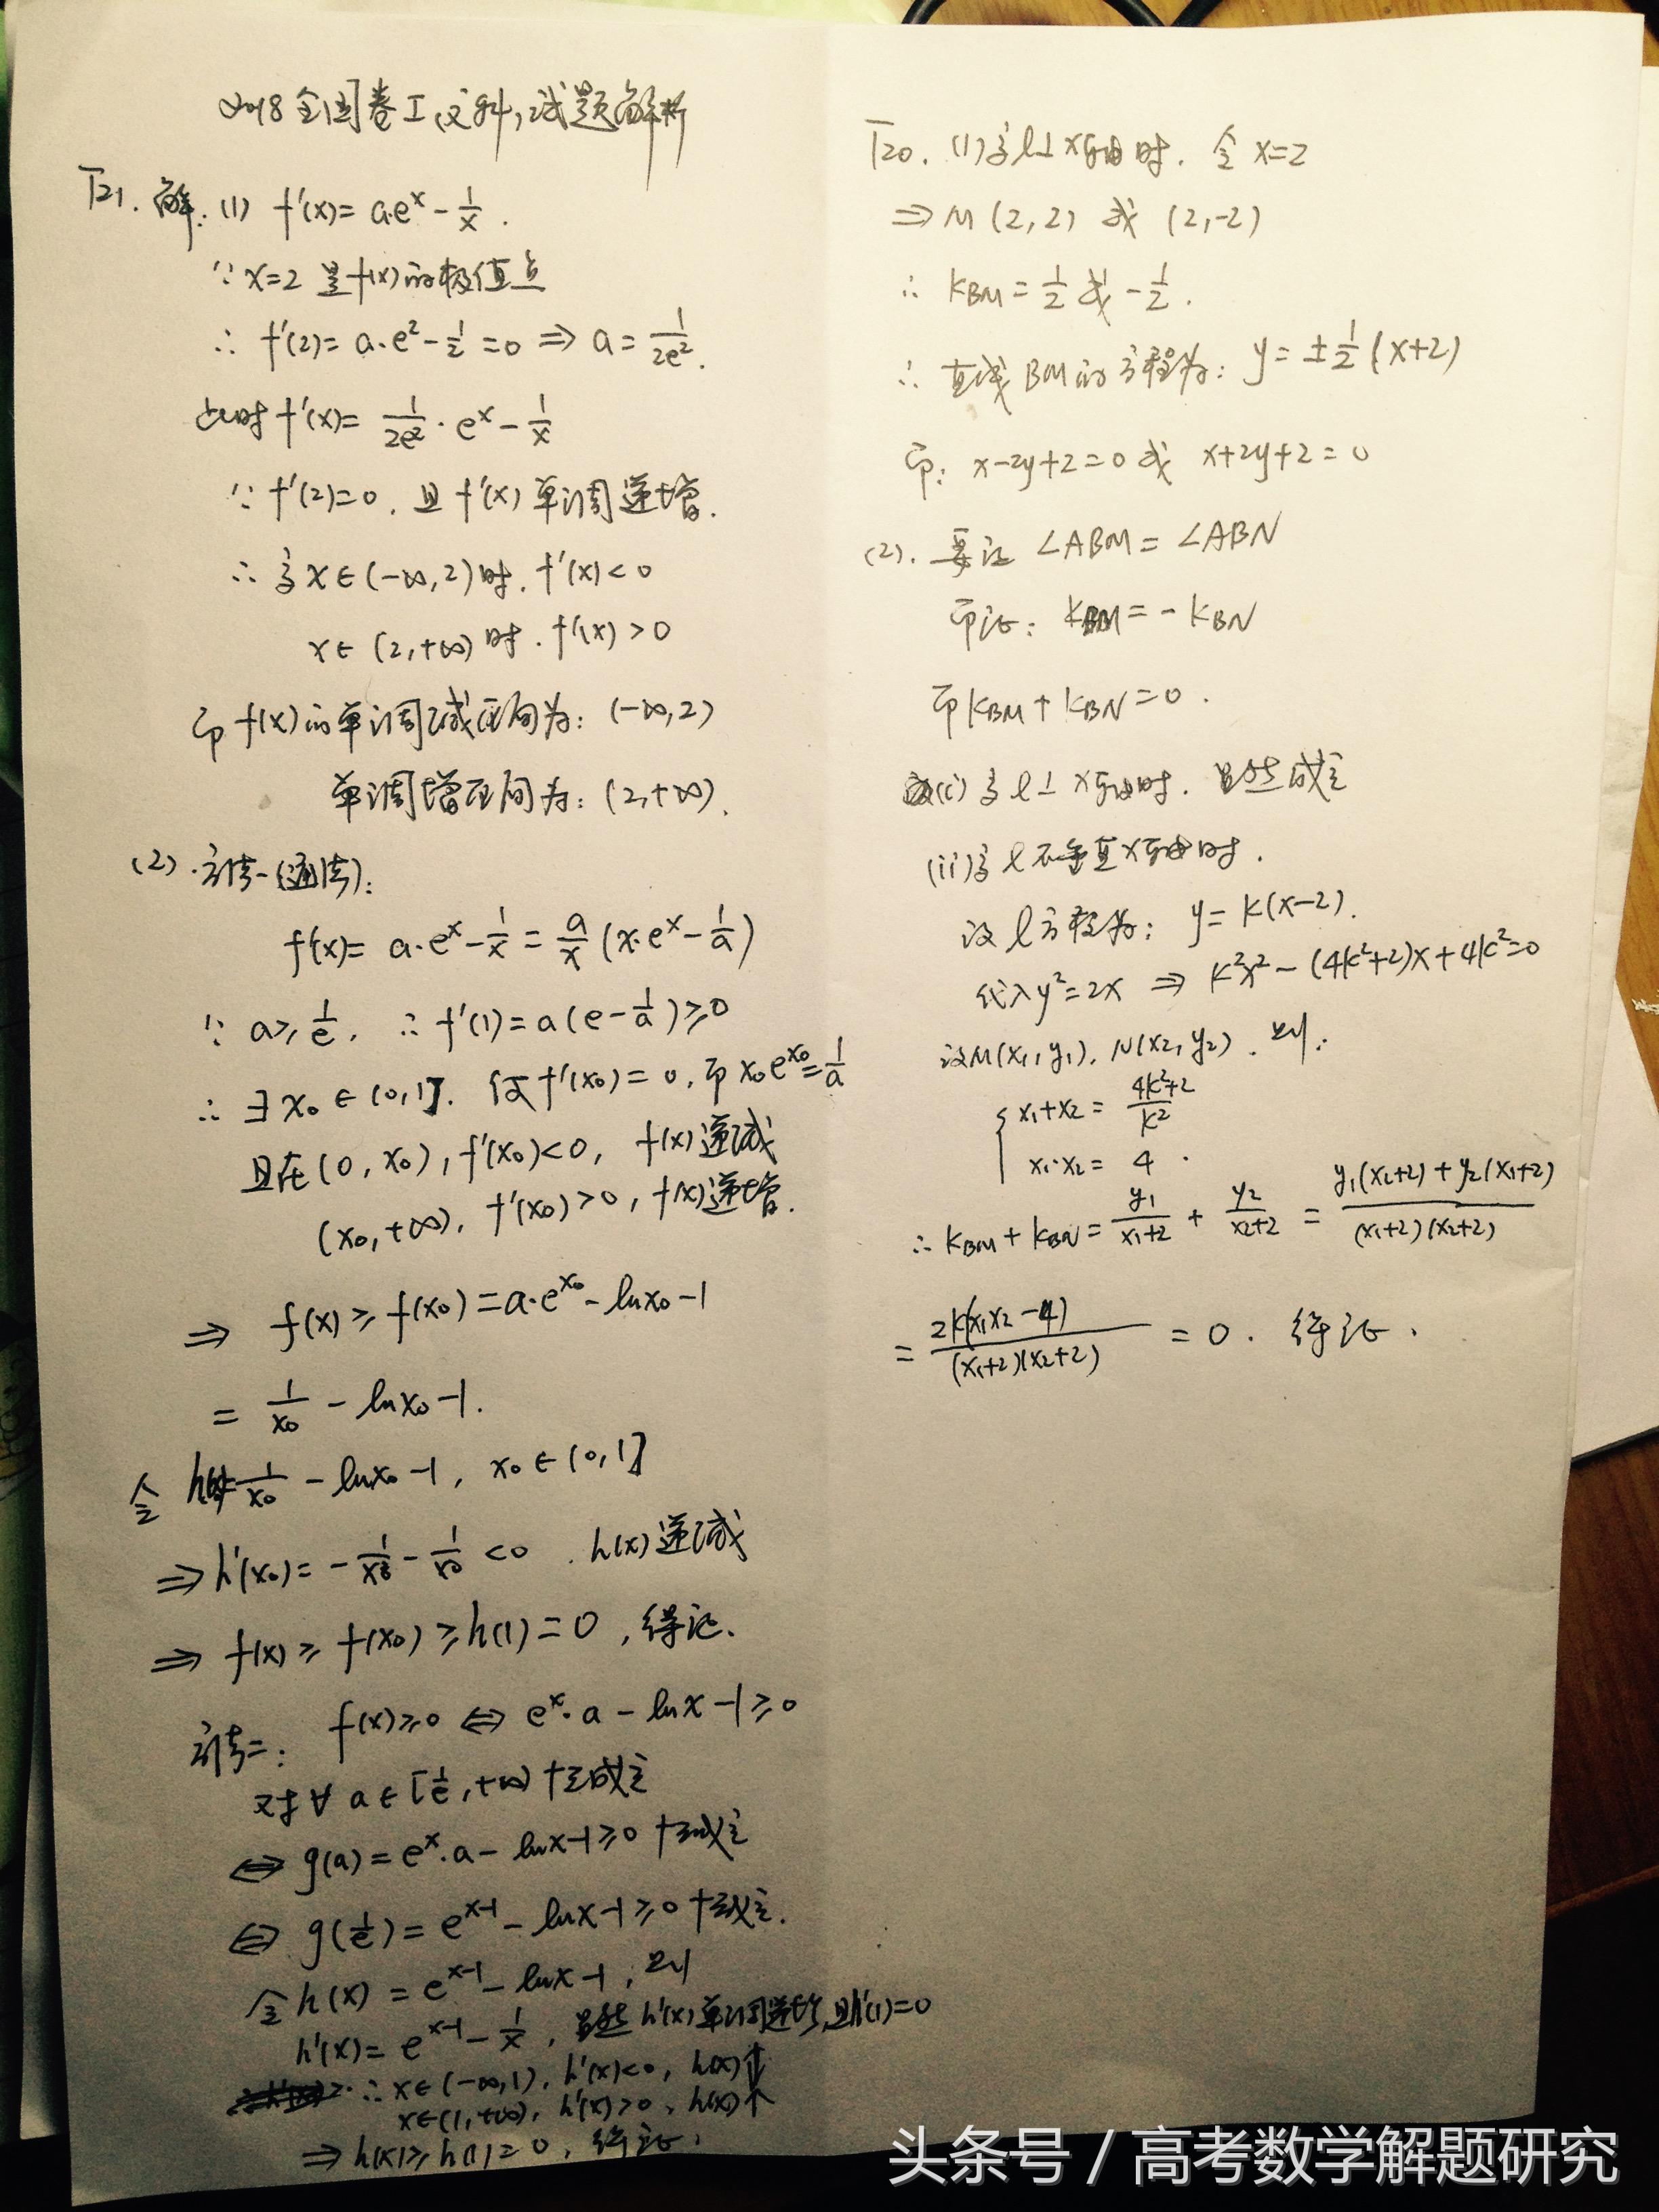 2018全国卷I(文科)试题解析
T21. 解:(1) f'(x)= a·eˣ - 1/x .
∵ x=2 是f(x)的极值点
∴ f'(2)= a·e² - 1/2 =0 ⇒ a= 1/2e².
此时 f'(x)= 1/2e² · eˣ - 1/x
∵ f'(2)=0, 且 f'(x) 单调递增.
∴ 当 x∈(-∞,2)时. f'(x)<0
x∈(2,+∞)时. f'(x)>0
即 f(x)的单调减区间为: (-∞,2)
单调增区间为: (2,+∞).
(2).方法一(通法):
f'(x)= a·eˣ - 1/x = a/x (x·eˣ - 1/a)
∵ a≥ 1/e, ∴ f'(1)= a(e - 1/a)≥0
∴ ∃ x₀∈(0,1]. 使 f'(x₀)=0, 即 x₀e^x₀ = 1/a
且在(0,x₀), f'(x₀)<0, f(x)递减
(x₀,+∞), f'(x₀)>0, f(x)递增.
⇒ f(x)≥f(x₀)=a·e^x₀ - lnx₀ -1
= 1/x₀ - lnx₀ -1.
令 h(x)= 1/x₀ - lnx₀ -1, x₀∈(0,1]
⇒ h'(x₀)= - 1/x₀² - 1/x₀ <0 . h(x)递减
⇒ f(x)≥f(x₀)≥h(1)=0, 得证.
方法二: f(x)≥0 ⇔ eˣ·a - lnx -1≥0
对∀ a∈[1/e,+∞)恒成立
⇔ g(a)=eˣ·a - lnx-1≥0 恒成立
⇔ g(1/e)= e^(x-1) - lnx-1≥0 恒成立.
令 h(x) = e^(x-1) - lnx-1, 则
h'(x)= e^(x-1) - 1/x, 显然 h'(x)单调递增,且h'(1)=0
∴ x∈(-∞,1), h'(x)<0, h(x)↓
x∈(1,+∞), h'(x)>0, h(x)↑
⇒ h(x)≥h(1)=0, 得证.
T20. (1)当l⊥x轴时. 令 x=2
⇒ M (2,2) 或 (2,-2)
∴ kBM = 1/2 或 - 1/2 .
∴ 直线BM的方程为: y= ± 1/2 (x+2)
即: x-2y+2=0 或 x+2y+2=0
(2). 要证 ∠ABM = ∠ABN
即证: kBM = - kBN
即 kBM + kBN =0 .
(i)当 l⊥x轴时. 显然成立
(ii)当 l 不垂直x轴时.
设 l 方程为: y= k(x-2).
代入y²=2x ⇒ k²x²-(4k²+2)x+4k²=0
设M(x₁,y₁), N(x₂,y₂). 则:
{ x₁+x₂ = (4k²+2)/k²
x₁·x₂ = 4 .
∴ kBM + kBN = y₁/(x₁+2) + y₂/(x₂+2) = [y₁(x₂+2)+y₂(x₁+2)]/(x₁+2)(x₂+2)
= 2k(x₁x₂-4)/(x₁+2)(x₂+2) = 0 . 得证.
头条号 / 高考数学解题研究